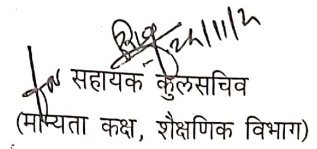 सहायक कुलसचिव
(मान्यता कक्ष, शैक्षणिक विभाग)